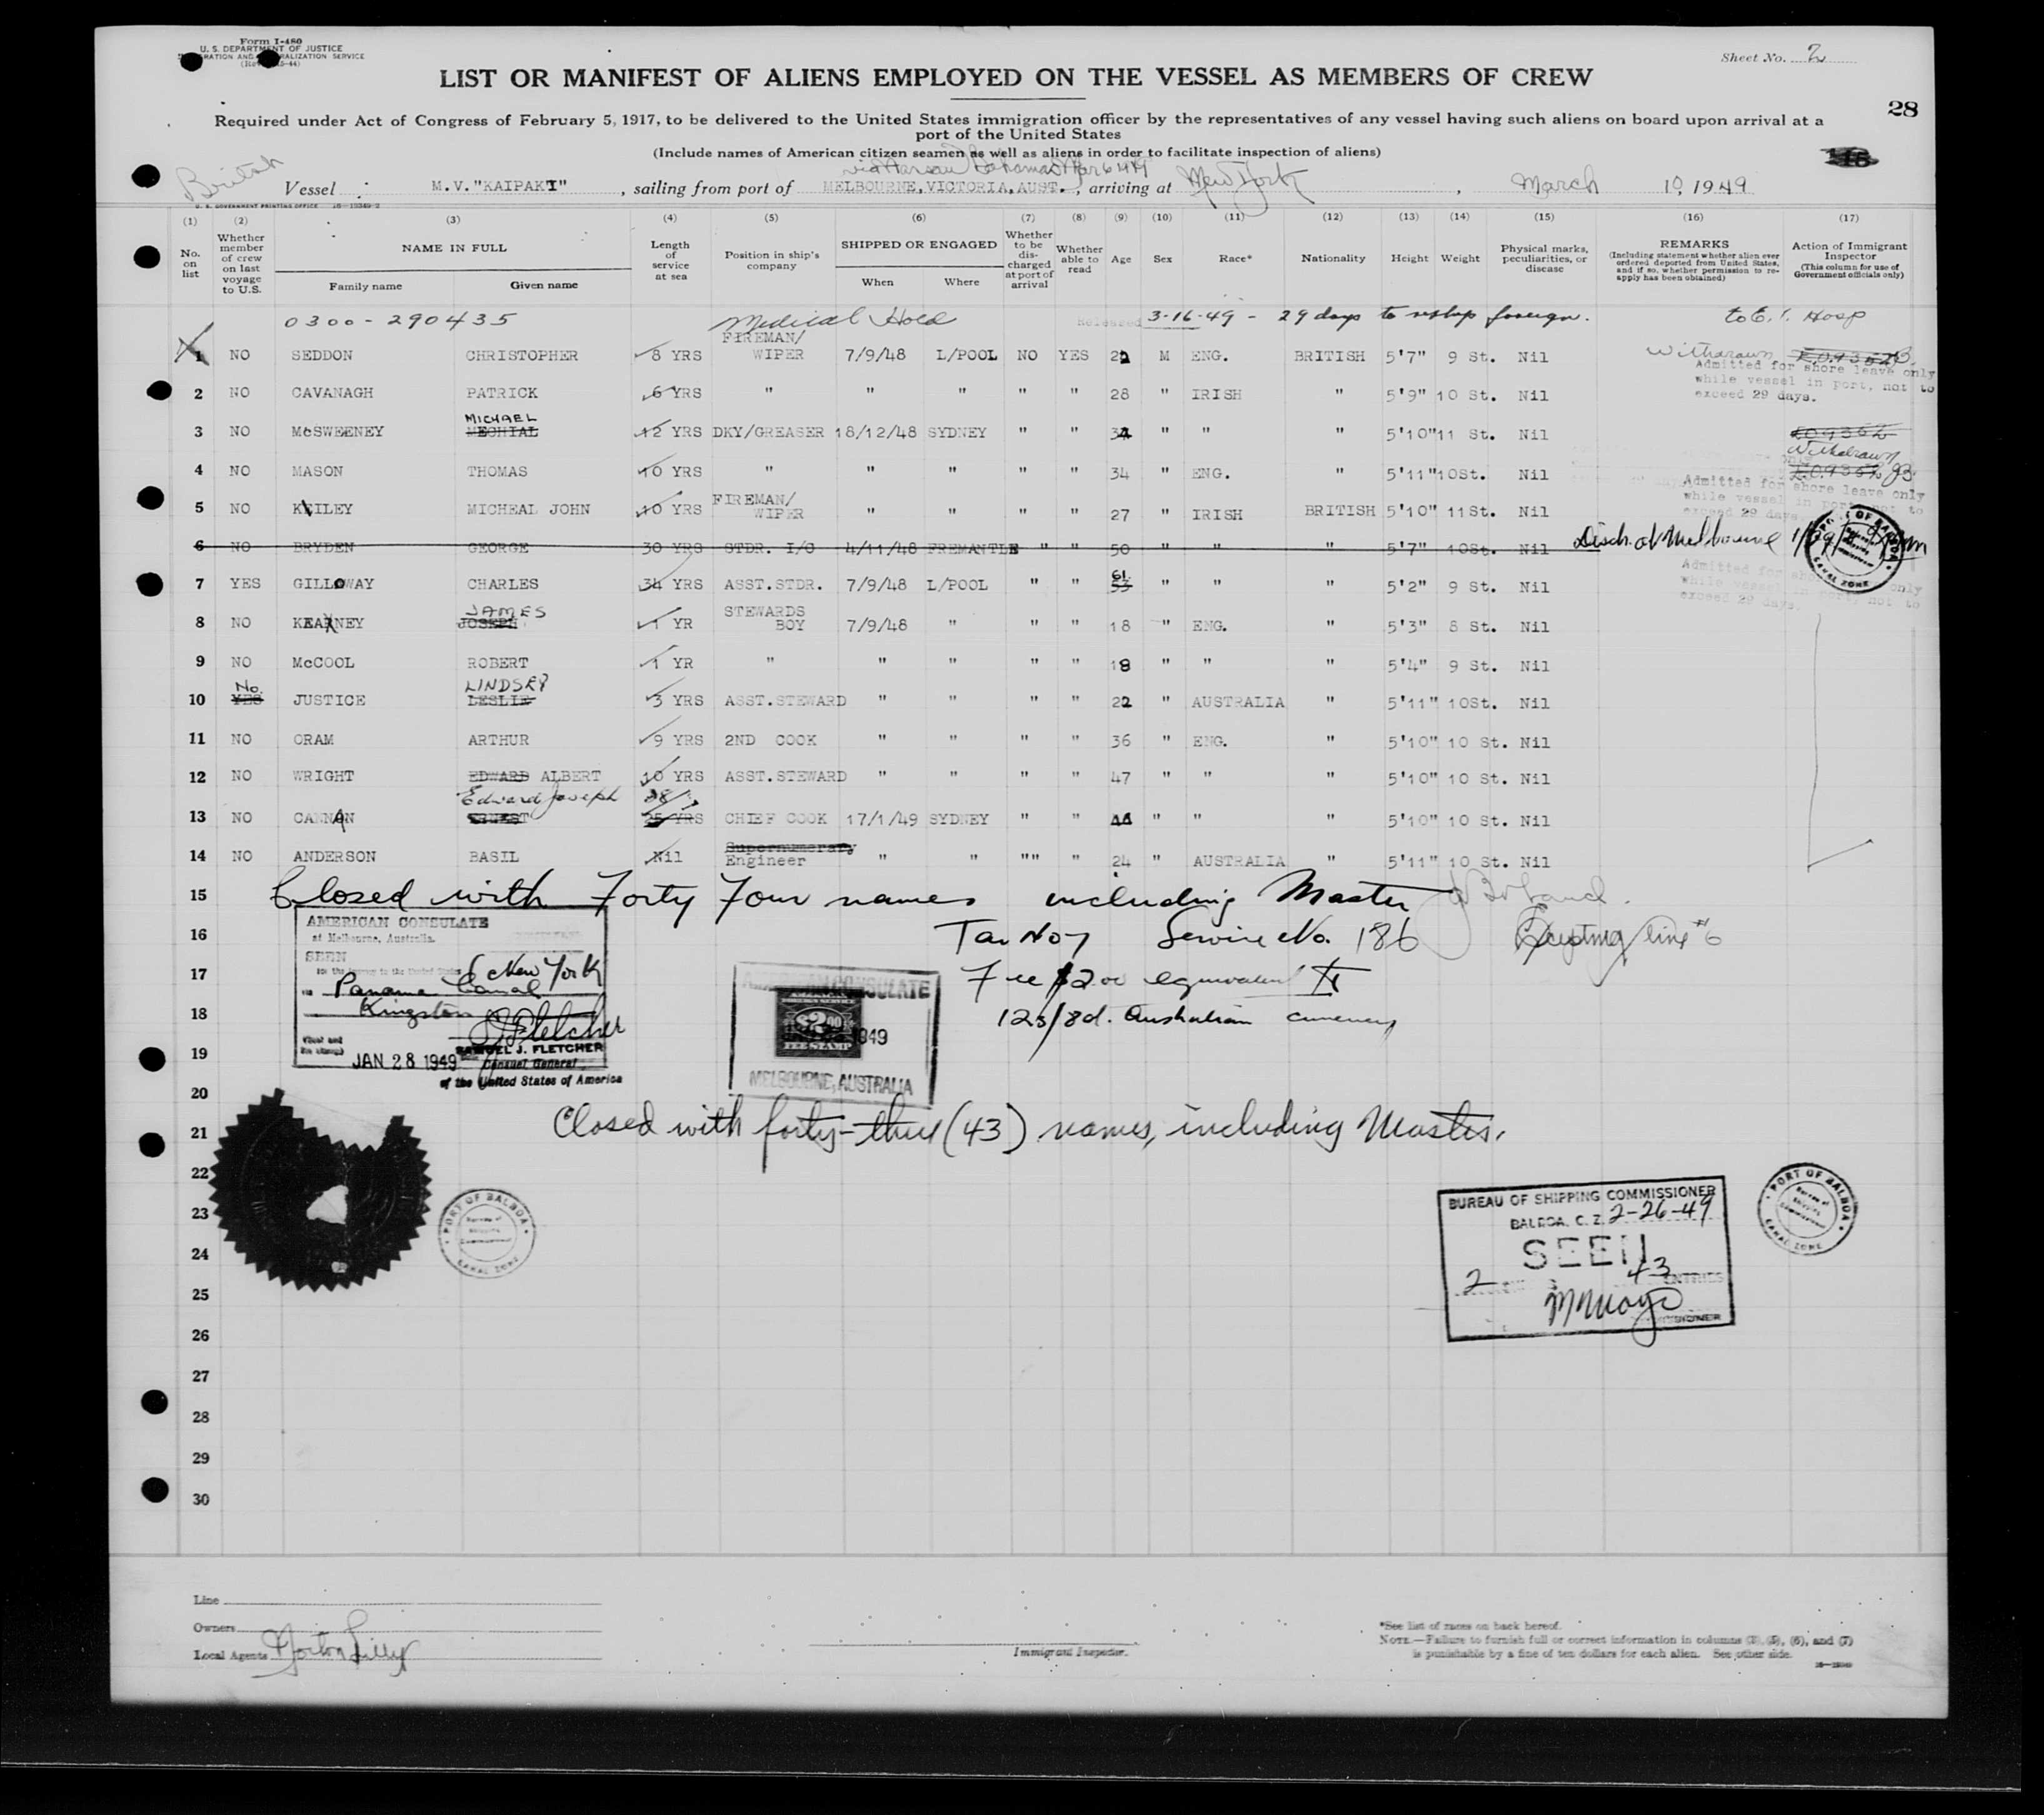 Form I-480
U. S. DEPARTMENT OF JUSTICE
IMMIGRATION AND NATURALIZATION SERVICE
Sheet No. 2
LIST OR MANIFEST OF ALIENS EMPLOYED ON THE VESSEL AS MEMBERS OF CREW
28
Required under Act of Congress of February 5, 1917, to be delivered to the United States immigration officer by the representatives of any vessel having such aliens on board upon arrival at a
port of the United States
(Include names of American citizen seamen as well as aliens in order to facilitate inspection of aliens)
via Nassau Bahamas Mar 6 1949
British Vessel M.V. "KAIPAKI", sailing from port of MELBOURNE, VICTORIA, AUST., arriving at New York, March 10, 1949
U. S. GOVERNMENT PRINTING OFFICE 16-13349-2
(1) (2) (3) (4) (5) (6) (7) (8) (9) (10) (11) (12) (13) (14) (15) (16) (17)
No. on list
Whether member of crew on last voyage to U.S.
NAME IN FULL
Family name Given name
Length of service at sea
Position in ship's company
SHIPPED OR ENGAGED
When Where
Whether to be discharged at port of arrival
Whether able to read
Age Sex Race* Nationality Height Weight
Physical marks, peculiarities, or disease
REMARKS
(Including statement whether alien ever ordered deported from United States, and if so, whether permission to reapply has been obtained)
Action of Immigrant Inspector
(This column for use of Government officials only)
0300-290435 Medical Hold Released 3-16-49 - 29 days to reship foreign. to E. I. Hosp
1 NO SEDDON CHRISTOPHER 8 YRS FIREMAN/ WIPER 7/9/48 L/POOL NO YES 22 M ENG. BRITISH 5'7" 9 St. Nil Withdrawn
Admitted for shore leave only
while vessel in port, not to
exceed 29 days.
2 NO CAVANAGH PATRICK 6 YRS " " " " " 28 " IRISH " 5'9" 10 St. Nil
3 NO McSWEENEY MICHAEL MECHIAL 12 YRS DKY/GREASER 18/12/48 SYDNEY " " 34 " " " 5'10" 11 St. Nil
Withdrawn
4 NO MASON THOMAS 10 YRS " " " " " 34 " ENG. " 5'11" 10St. Nil
Admitted for shore leave only
while vessel in port, not to
exceed 29 days.
5 NO KILEY MICHEAL JOHN 10 YRS FIREMAN/ WIPER " " " " 27 " IRISH BRITISH 5'10" 11St. Nil
6 NO BRYDEN GEORGE 30 YRS STDR. I/C 4/11/48 FREMANTLE " " 50 " " " 5'7" 10St. Nil Disch. at Melbourne
PORT OF BALBOA CANAL ZONE
Admitted for shore leave only
while vessel in port, not to
exceed 29 days.
7 YES GILLOWAY CHARLES 34 YRS ASST.STDR. 7/9/48 L/POOL " " 61 53 " " " 5'2" 9 St. Nil
8 NO KEARNEY JAMES JOSEPH 1 YR STEWARDS BOY 7/9/48 " " " 18 " ENG. " 5'3" 8 St. Nil
9 NO McCOOL ROBERT 1 YR " " " " " 18 " " " 5'4" 9 St. Nil
10 No YES JUSTICE LINDSEY LESLIE 3 YRS ASST.STEWARD " " " " 22 " AUSTRALIA " 5'11" 10St. Nil
11 NO ORAM ARTHUR 9 YRS 2ND COOK " " " " 36 " ENG. " 5'10" 10 St. Nil
12 NO WRIGHT EDWARD ALBERT 10 YRS ASST.STEWARD " " " " 47 " " " 5'10" 10 St. Nil
13 NO CANNAN Edward Joseph ERNEST 28 25 YRS CHIEF COOK 17/1/49 SYDNEY " " 46 " " " 5'10" 10 St. Nil
14 NO ANDERSON BASIL Nil Supernumerary Engineer " " "" " 24 " AUSTRALIA " 5'11" 10 St. Nil
15 Closed with Forty Four names including Master
16 Tar No 7 Service No. 186 Excepting line #6
17 Fee $2.00 equivalent to
18 12s/8d. Australian currency
19
20
21 Closed with forty-three (43) names, including Master.
22
23
24
25
26
27
28
29
30
AMERICAN CONSULATE
at Melbourne, Australia.
SEEN
for the journey to the United States
New York
via Panama Canal
Kingston
JAN 28 1949
SAMUEL J. FLETCHER
Consul General
of the United States of America
AMERICAN CONSULATE
$2.00
FEE STAMP
MELBOURNE, AUSTRALIA
PORT OF BALBOA
Bureau of Shipping Commissioner
CANAL ZONE
BUREAU OF SHIPPING COMMISSIONER
BALBOA, C. Z. 2-26-49
SEEN
2 43 ENTRIES
COMMISSIONER
PORT OF BALBOA
Bureau of Shipping Commissioner
CANAL ZONE
Line
Owners
Local Agents Norton Lilly
Immigrant Inspector.
*See list of races on back hereof.
NOTE.—Failure to furnish full or correct information in columns (3), (5), (6), and (7)
is punishable by a fine of ten dollars for each alien. See other side.